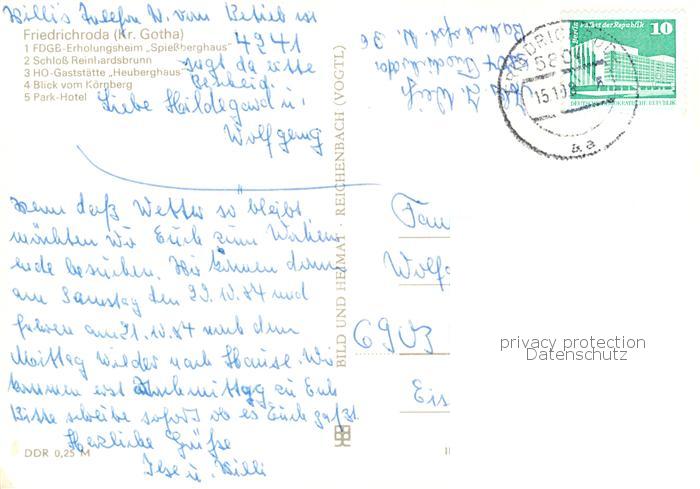 Willi's Telefon N. vom Betrieb ist
4241
sagt da bitte
Bescheid.
Friedrichroda (Kr. Gotha)
1 FDGB-Erholungsheim „Spießberghaus"
2 Schloß Reinhardsbrunn
3 HO-Gaststätte „Heuberghaus"
4 Blick vom Körnberg
5 Park-Hotel
Liebe Hildegard u.
Wolfgang
Wenn daß Wetter so bleibt,
möchten wir Euch zum Wochen
ende besuchen. Wir kommen dann
am Samstag den 20.10.84 und
fahren am 21.10.84 nach dem
Mittag wieder nach Hause. Wir
kommen erst Nachmittag zu Euch
Bitte schreibe sofort ob es Euch paßt.
Herzliche Grüße
Ilse u. Willi
DDR 0,25 M
BILD UND HEIMAT · REICHENBACH (VOGTL)
Bahnhofst. N. 36
Berlin Palast der Republik
10
DEUTSCHE DEMOKRATISCHE REPUBLIK
FRIEDRICHRODA
5804
15.10.8
Fam
Wolfg
6903
Eis
privacy protection
Datenschutz